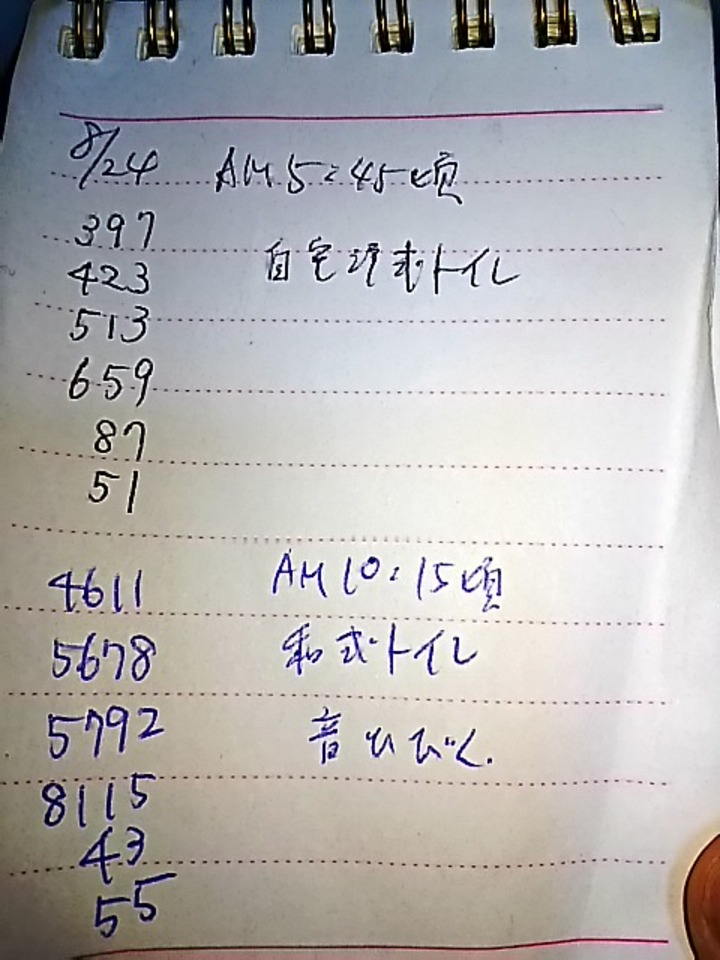 8/24 AM5:45頃
397
自宅洋式トイレ
423
513
659
87
51
4611 AM10:15頃
5678 和式トイレ
5792 音ひびく.
8115
43
55